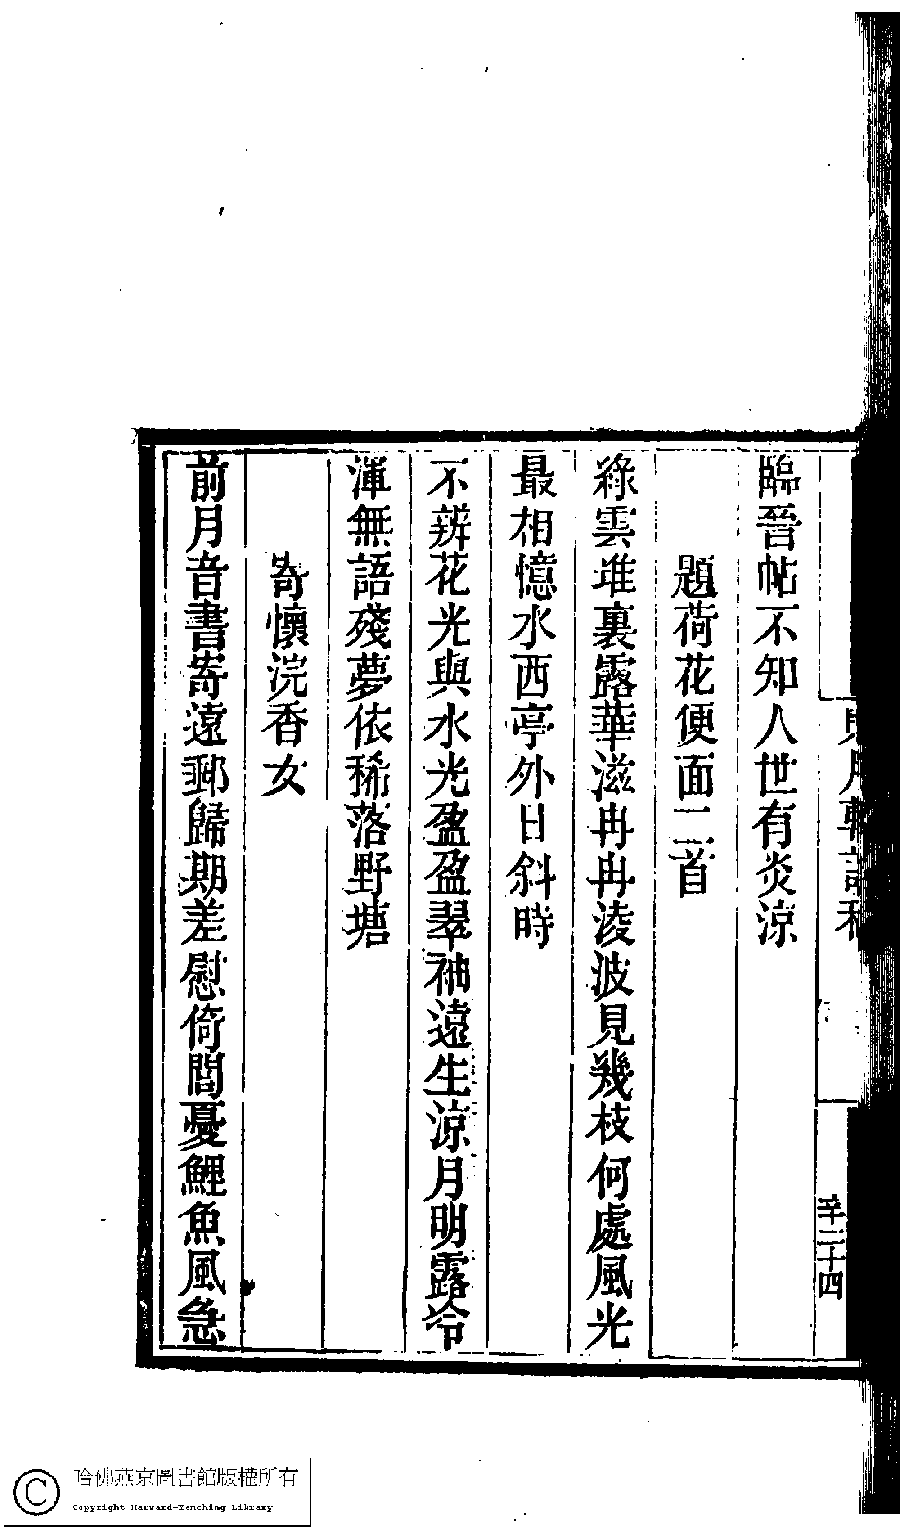 臨晉帖不知人世有炎涼
題荷花便面二首
綠雲堆裏露華滋冉冉淩波見幾枝何處風光
最相憶水西亭外日斜時
不辨花光與水光盈盈翠袖遠生涼月明露冷
渾無語殘夢依稀落野塘
寄懷浣香女
前月音書寄遠郵歸期差慰倚閭憂鯉魚風急
辛二十四
哈佛燕京圖書館版權所有
Copyright Harvard-Yenching Library